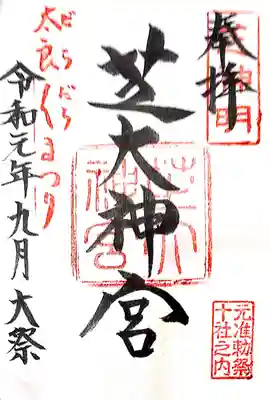 奉拝
芝神明
芝大神宮
元准勅祭
十社之内
だらだら
太良くまつり
令和元年九月 大祭